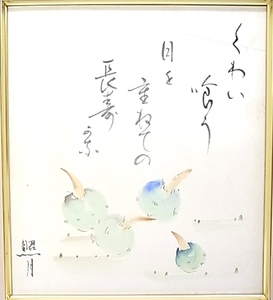 くわい
喰う
目を
重ねての
長寿
照月